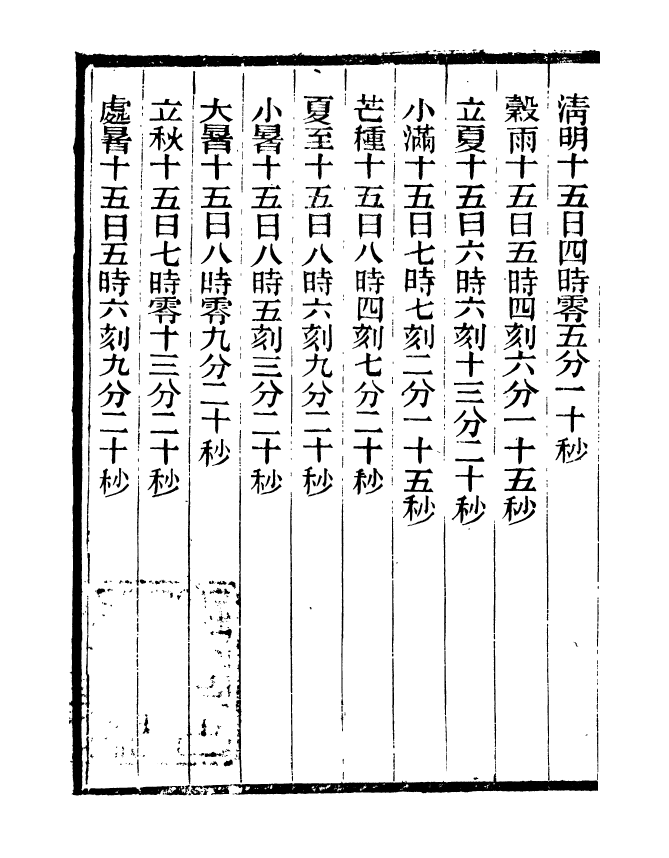 清明十五日四時零五分一十秒
穀雨十五日五時四刻六分一十五秒
立夏十五日六時六刻十三分二十秒
小滿十五日七時七刻二分一十五秒
芒種十五日八時四刻七分二十秒
夏至十五日八時六刻九分二十秒
小暑十五日八時五刻三分二十秒
大暑十五日八時零九分二十秒
立秋十五日七時零十三分二十秒
處暑十五日五時六刻九分二十秒